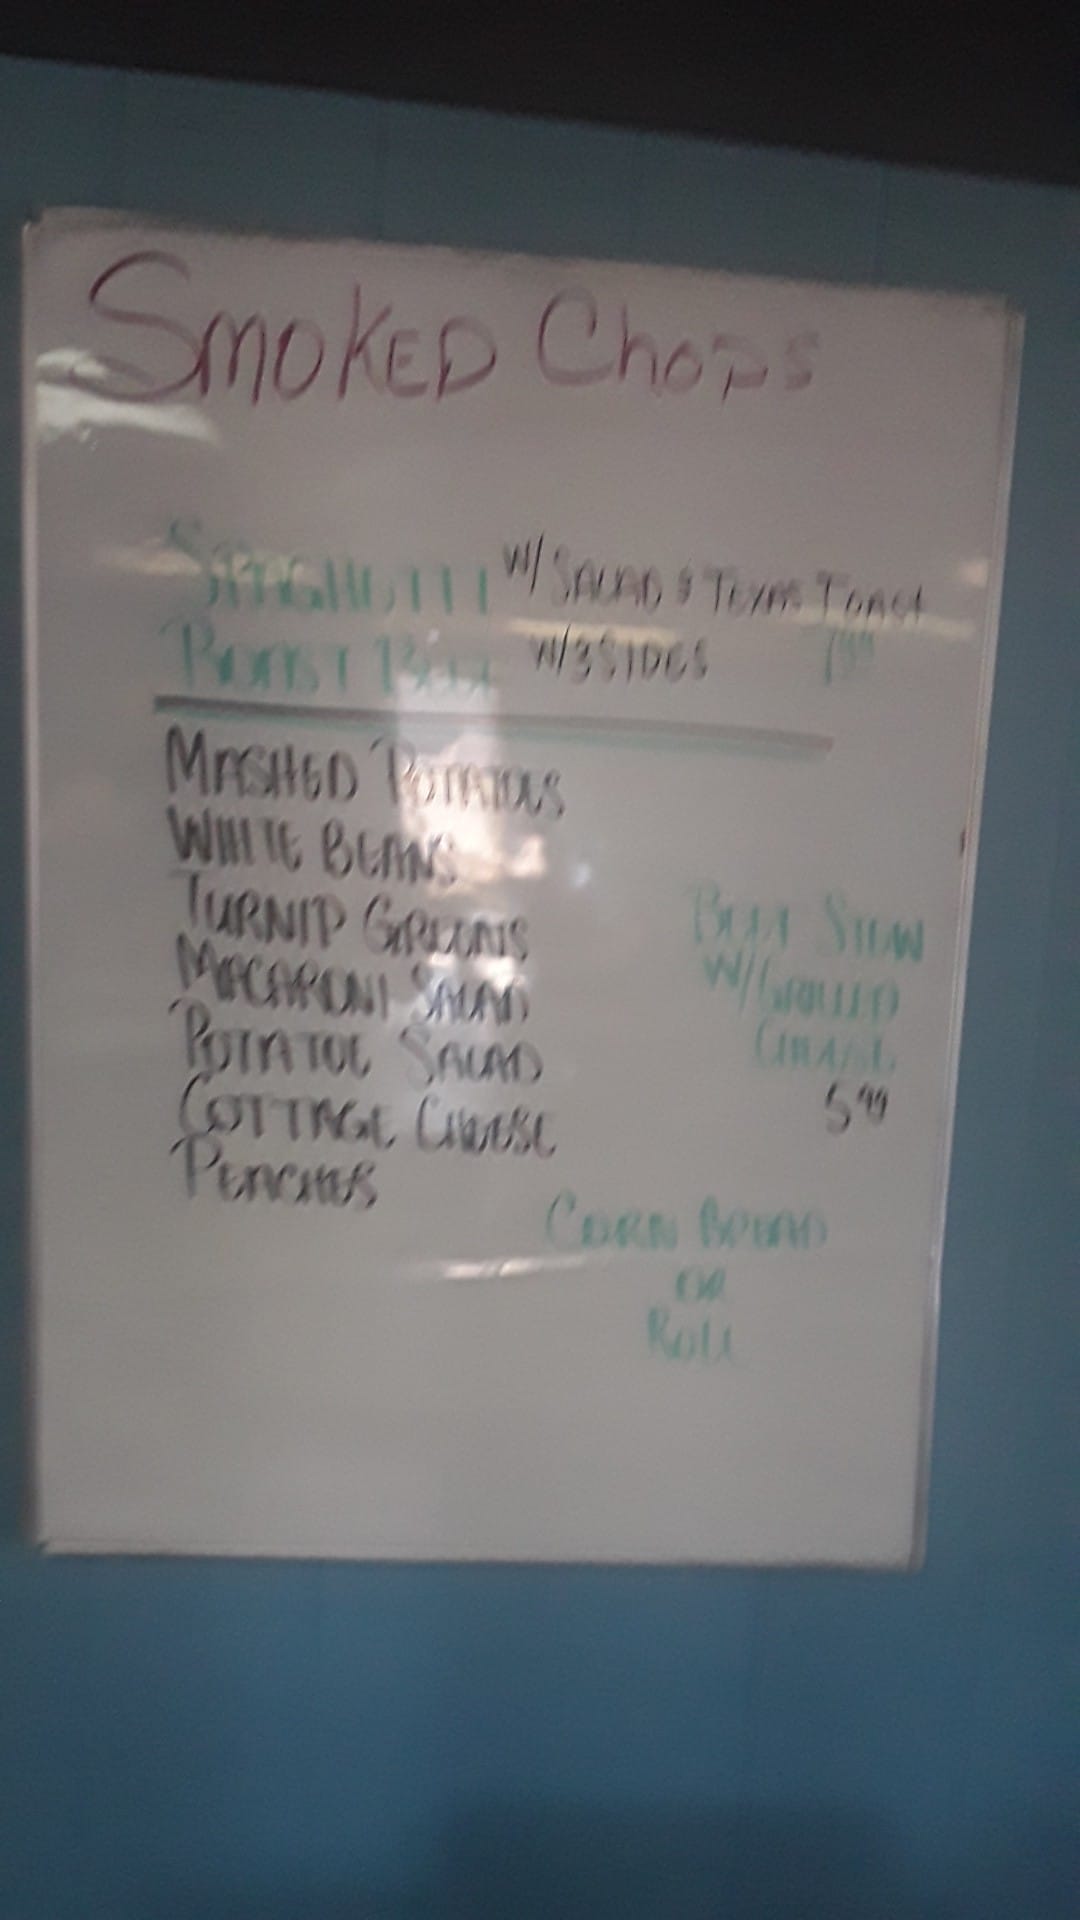 SMOKED Chops
SPAGHETTI W/ SALAD & TEXAS TOAST
ROAST BEEF W/3 SIDES 7.99
MASHED POTATOES
WHITE BEANS
TURNIP GREENS
MACARONI SALAD
POTATOE SALAD
COTTAGE CHEESE
PEACHES
BEEF STEW
W/GRILLED
CHEESE
5.99
CORN BREAD
OR
ROLL